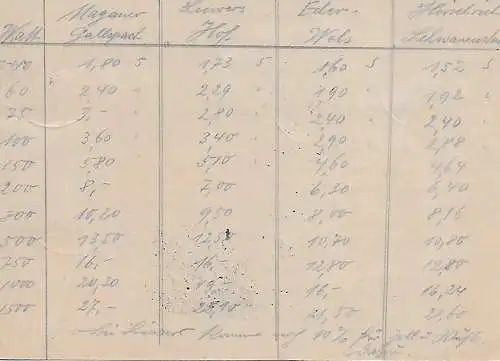 Maganer Luwers Eder- Hirschrich
Watt Gallspach Hof Wels
-40 1,80 S 1,73 S 1,60 S 1,52 S
60 2,40 " 2,29 " 1,90 " 1,92 "
75 3,- " 2,80 " 2,40 2,40 "
100 3,60 3,40 " 2,90 " 2,88 "
150 5,80 5,10 " 4,60 4,64
200 8,- 7,00 6,30 6,40
300 10,20 9,50 8,00 8,16
500 13,50 12,50 10,70 10,80
750 16,- 16,- 12,80 12,80
1000 20,30 19,- 16,- 16,24
1500 27,- 25,90 21,50 21,60
bei Luwers kommen noch 10% für Zoll u.